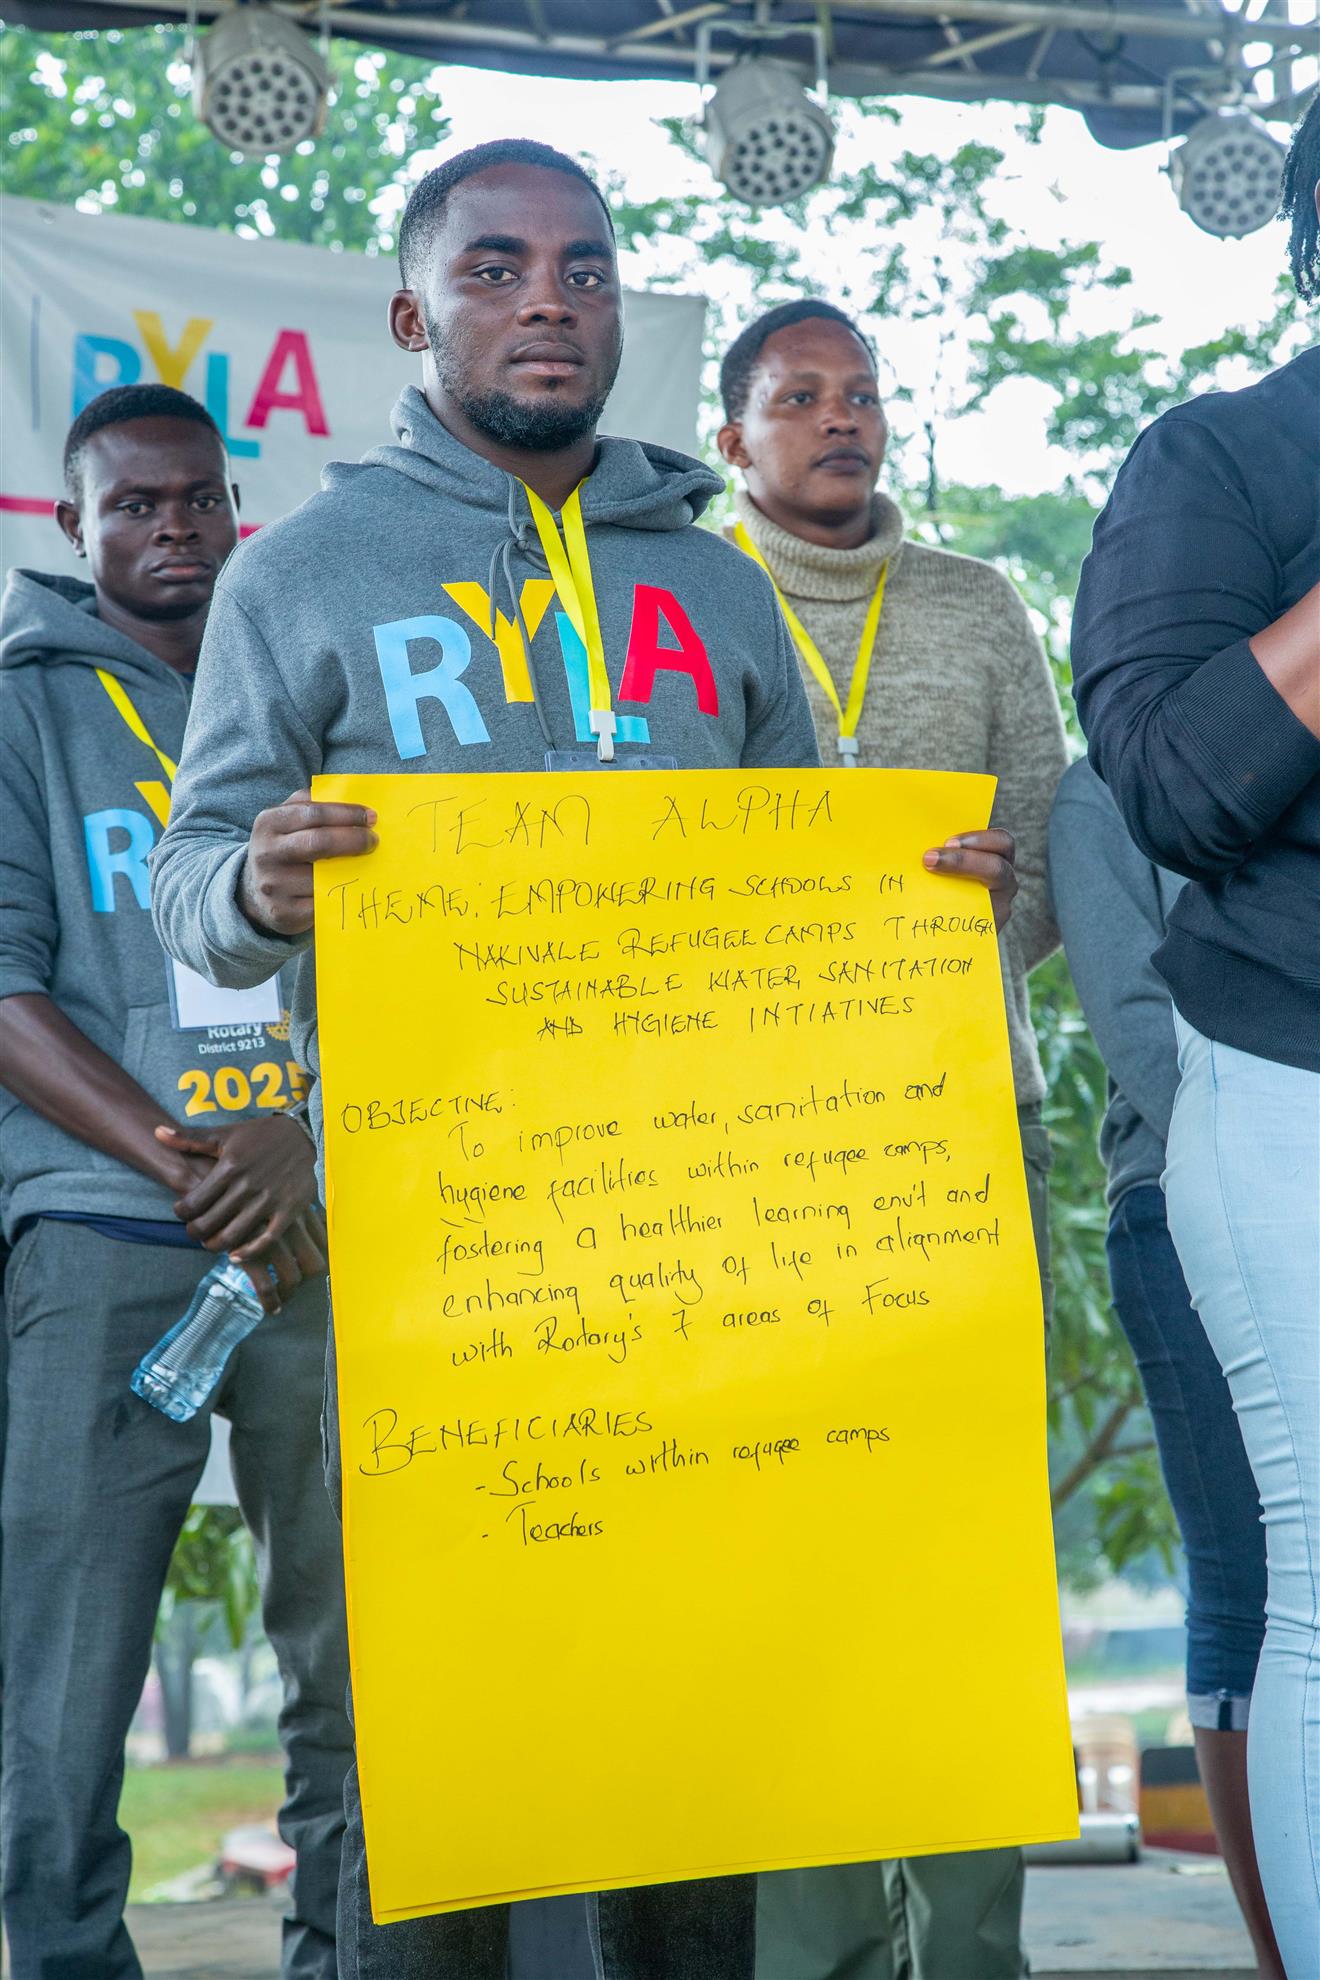 RYLA
RYLA
R Y
Rotary
District 9213
2025
TEAM ALPHA
THEME: EMPOWERING SCHOOLS IN
NAKIVALE REFUGEE CAMPS THROUGH
SUSTAINABLE WATER, SANITATION
AND HYGIENE INTIATIVES
OBJECTIVE:
To improve water, sanitation and
hygiene facilities within refugee camps,
fostering a healthier learning env't and
enhancing quality of life in alignment
with Rotary's 7 areas of Focus
BENEFICIARIES
- Schools within refugee camps
- Teachers